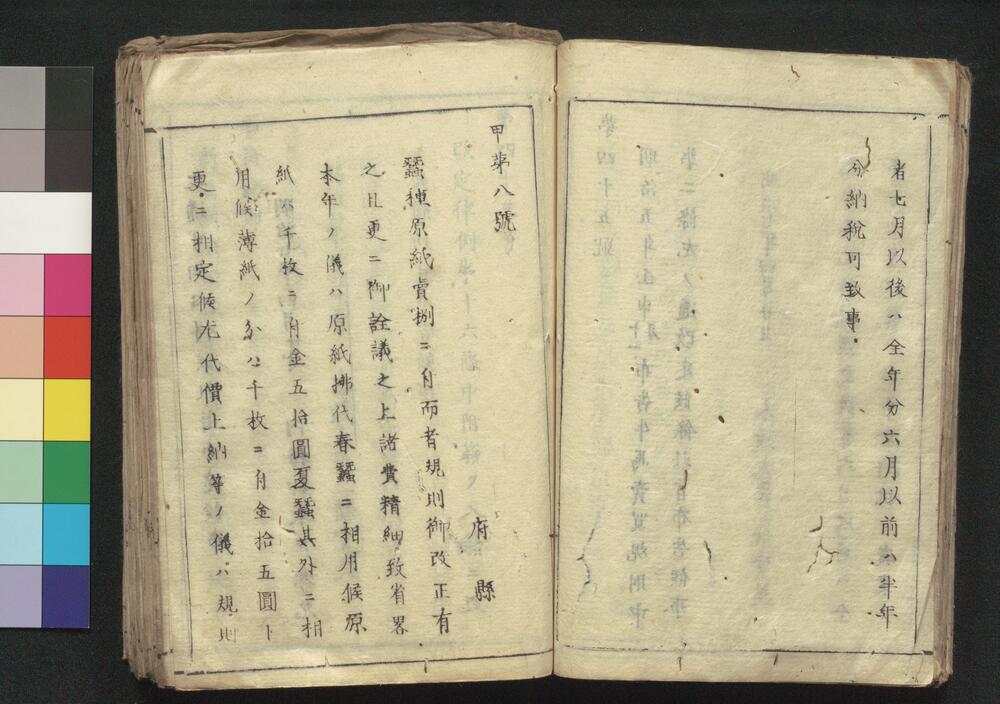 者七月以後ハ全年分六月以前ハ半年
分納税可致事
甲第八號
府縣
蠶種原紙賣捌ニ付而者規則御改正有
之且更ニ御詮議之上諸費精細致省畧
本年ノ儀ハ原紙拂代春蠶ニ相用候原
紙ハ千枚ニ付金五拾圓夏蠶其外ニ相
用候薄紙ノ分ハ千枚ニ付金拾五圓ト
更ニ相定候尤代價上納等ノ儀ハ規則